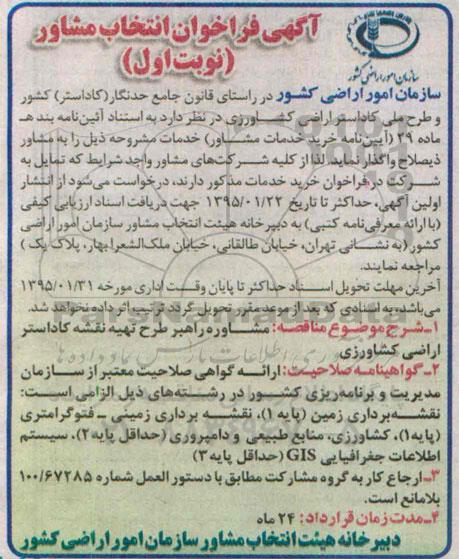 آگهی فراخوان انتخاب مشاور
(نوبت اول)
سازمان امور اراضی کشور
سازمان امور اراضی کشور در راستای قانون جامع حدنگار (کاداستر) کشور
و طرح ملی کاداستر اراضی کشاورزی در نظر دارد به استناد آئین‌نامه بند هـ
ماده ۲۹ (آیین‌نامه خرید خدمات مشاور) خدمات مشروحه ذیل را به مشاور
ذیصلاح واگذار نماید. لذا از کلیه شرکت‌های مشاور واجد شرایط که تمایل به
شرکت در فراخوان خرید خدمات مذکور دارند، درخواست می‌شود از انتشار
اولین آگهی، حداکثر تا تاریخ ۱۳۹۵/۰۱/۲۲ جهت دریافت اسناد ارزیابی کیفی
(با ارائه معرفی‌نامه کتبی) به دبیرخانه هیئت انتخاب مشاور سازمان امور اراضی
کشور (به نشانی تهران، خیابان طالقانی، خیابان ملک‌الشعرا بهار، پلاک یک)
مراجعه نمایند.
آخرین مهلت تحویل اسناد حداکثر تا پایان وقت اداری مورخه ۱۳۹۵/۰۱/۳۱
می‌باشد، به اسنادی که بعد از موعد مقرر تحویل گردد ترتیب اثر داده نخواهد شد.
۱ـ شرح موضوع مناقصه: مشاوره راهبر طرح تهیه نقشه کاداستر
اراضی کشاورزی
۲ـ گواهینامه صلاحیت: ارائه گواهی صلاحیت معتبر از سازمان
مدیریت و برنامه‌ریزی کشور در رشته‌های ذیل الزامی است:
نقشه‌برداری زمین (پایه ۱)، نقشه برداری زمینی ـ فتوگرامتری
(پایه۱)، کشاورزی، منابع طبیعی و دامپروری (حداقل پایه۲)، سیستم
اطلاعات جغرافیایی GIS (حداقل پایه۳)
۳ـ ارجاع کار به گروه مشارکت مطابق با دستور العمل شماره ۱۰۰/۶۷۲۸۵
بلامانع است.
۴ـ مدت زمان قرارداد: ۲۴ ماه
دبیرخانه هیئت انتخاب مشاور سازمان امور اراضی کشور